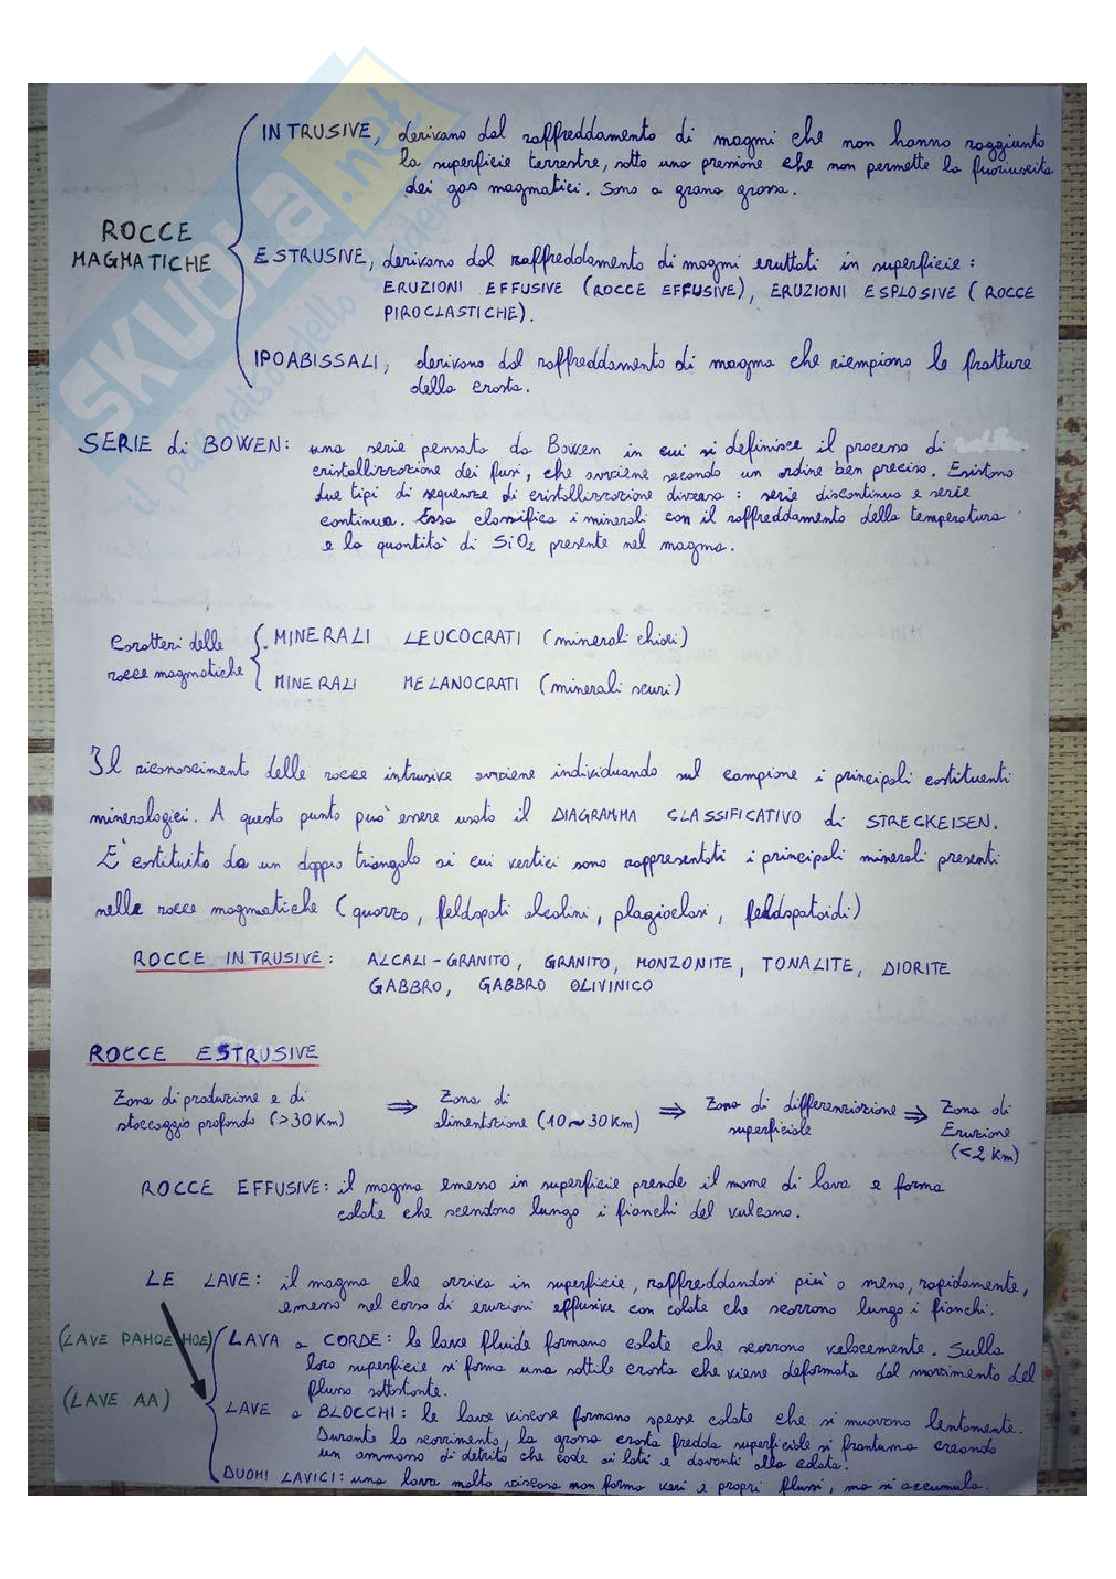 INTRUSIVE, derivano dal raffreddamento di magmi che non hanno raggiunto
la superficie terrestre, sotto una pressione che non permette la fuoriuscita
dei gas magmatici. Sono a grana grossa.
ROCCE
MAGMATICHE
ESTRUSIVE, derivano dal raffreddamento di magmi eruttati in superficie:
ERUZIONI EFFUSIVE (ROCCE EFFUSIVE), ERUZIONI ESPLOSIVE (ROCCE
PIROCLASTICHE).
IPOABISSALI, derivano dal raffreddamento di magma che riempiono le fratture
della crosta.
SERIE di BOWEN: una serie pensata da Bowen in cui si definisce il processo di
cristallizzazione dei fusi, che avviene secondo un ordine ben preciso. Esistono
due tipi di sequenze di cristallizzazione diversa: serie discontinua e serie
continua. Essa classifica i minerali con il raffreddamento della temperatura
e la quantità di SiO2 presente nel magma.
Caratteri delle
rocce magmatiche
MINERALI LEUCOCRATI (minerali chiari)
MINERALI MELANOCRATI (minerali scuri)
Il riconoscimento delle rocce intrusive avviene individuando sul campione i principali costituenti
mineralogici. A questo punto può essere usato il DIAGRAMMA CLASSIFICATIVO di STRECKEISEN.
E' costituito da un doppio triangolo ai cui vertici sono rappresentati i principali minerali presenti
nelle rocce magmatiche (quarzo, feldspati alcalini, plagioclasi, feldspatoidi)
ROCCE INTRUSIVE: ALCALI-GRANITO, GRANITO, MONZONITE, TONALITE, DIORITE
GABBRO, GABBRO OLIVINICO
ROCCE ESTRUSIVE
Zona di produzione e di
stoccaggio profondo (>30 Km)
⇒ Zona di
alimentazione (10~30 Km)
⇒ Zona di differenziazione
superficiale
⇒ Zona di
Eruzione
(<2 Km)
ROCCE EFFUSIVE: il magma emesso in superficie prende il nome di lava e forma
colate che scendono lungo i fianchi del vulcano.
LE LAVE: il magma che arriva in superficie, raffreddandosi più o meno, rapidamente,
emesso nel corso di eruzioni effusive con colate che scorrono lungo i fianchi.
(LAVE PAHOEHOE) LAVA a CORDE: le lave fluide formano colate che scorrono velocemente. Sulla
loro superficie si forma una sottile crosta che viene deformata dal movimento del
flusso sottostante.
(LAVE AA) LAVE a BLOCCHI: le lave viscose formano spesse colate che si muovono lentamente.
Durante lo scorrimento, la grossa crosta fredda superficiale si frantuma creando
un ammasso di detrito che cade ai lati e davanti alla colata.
DUOMI LAVICI: una lava molto viscosa non forma veri e propri flussi, ma si accumula.
SKUOLA.net